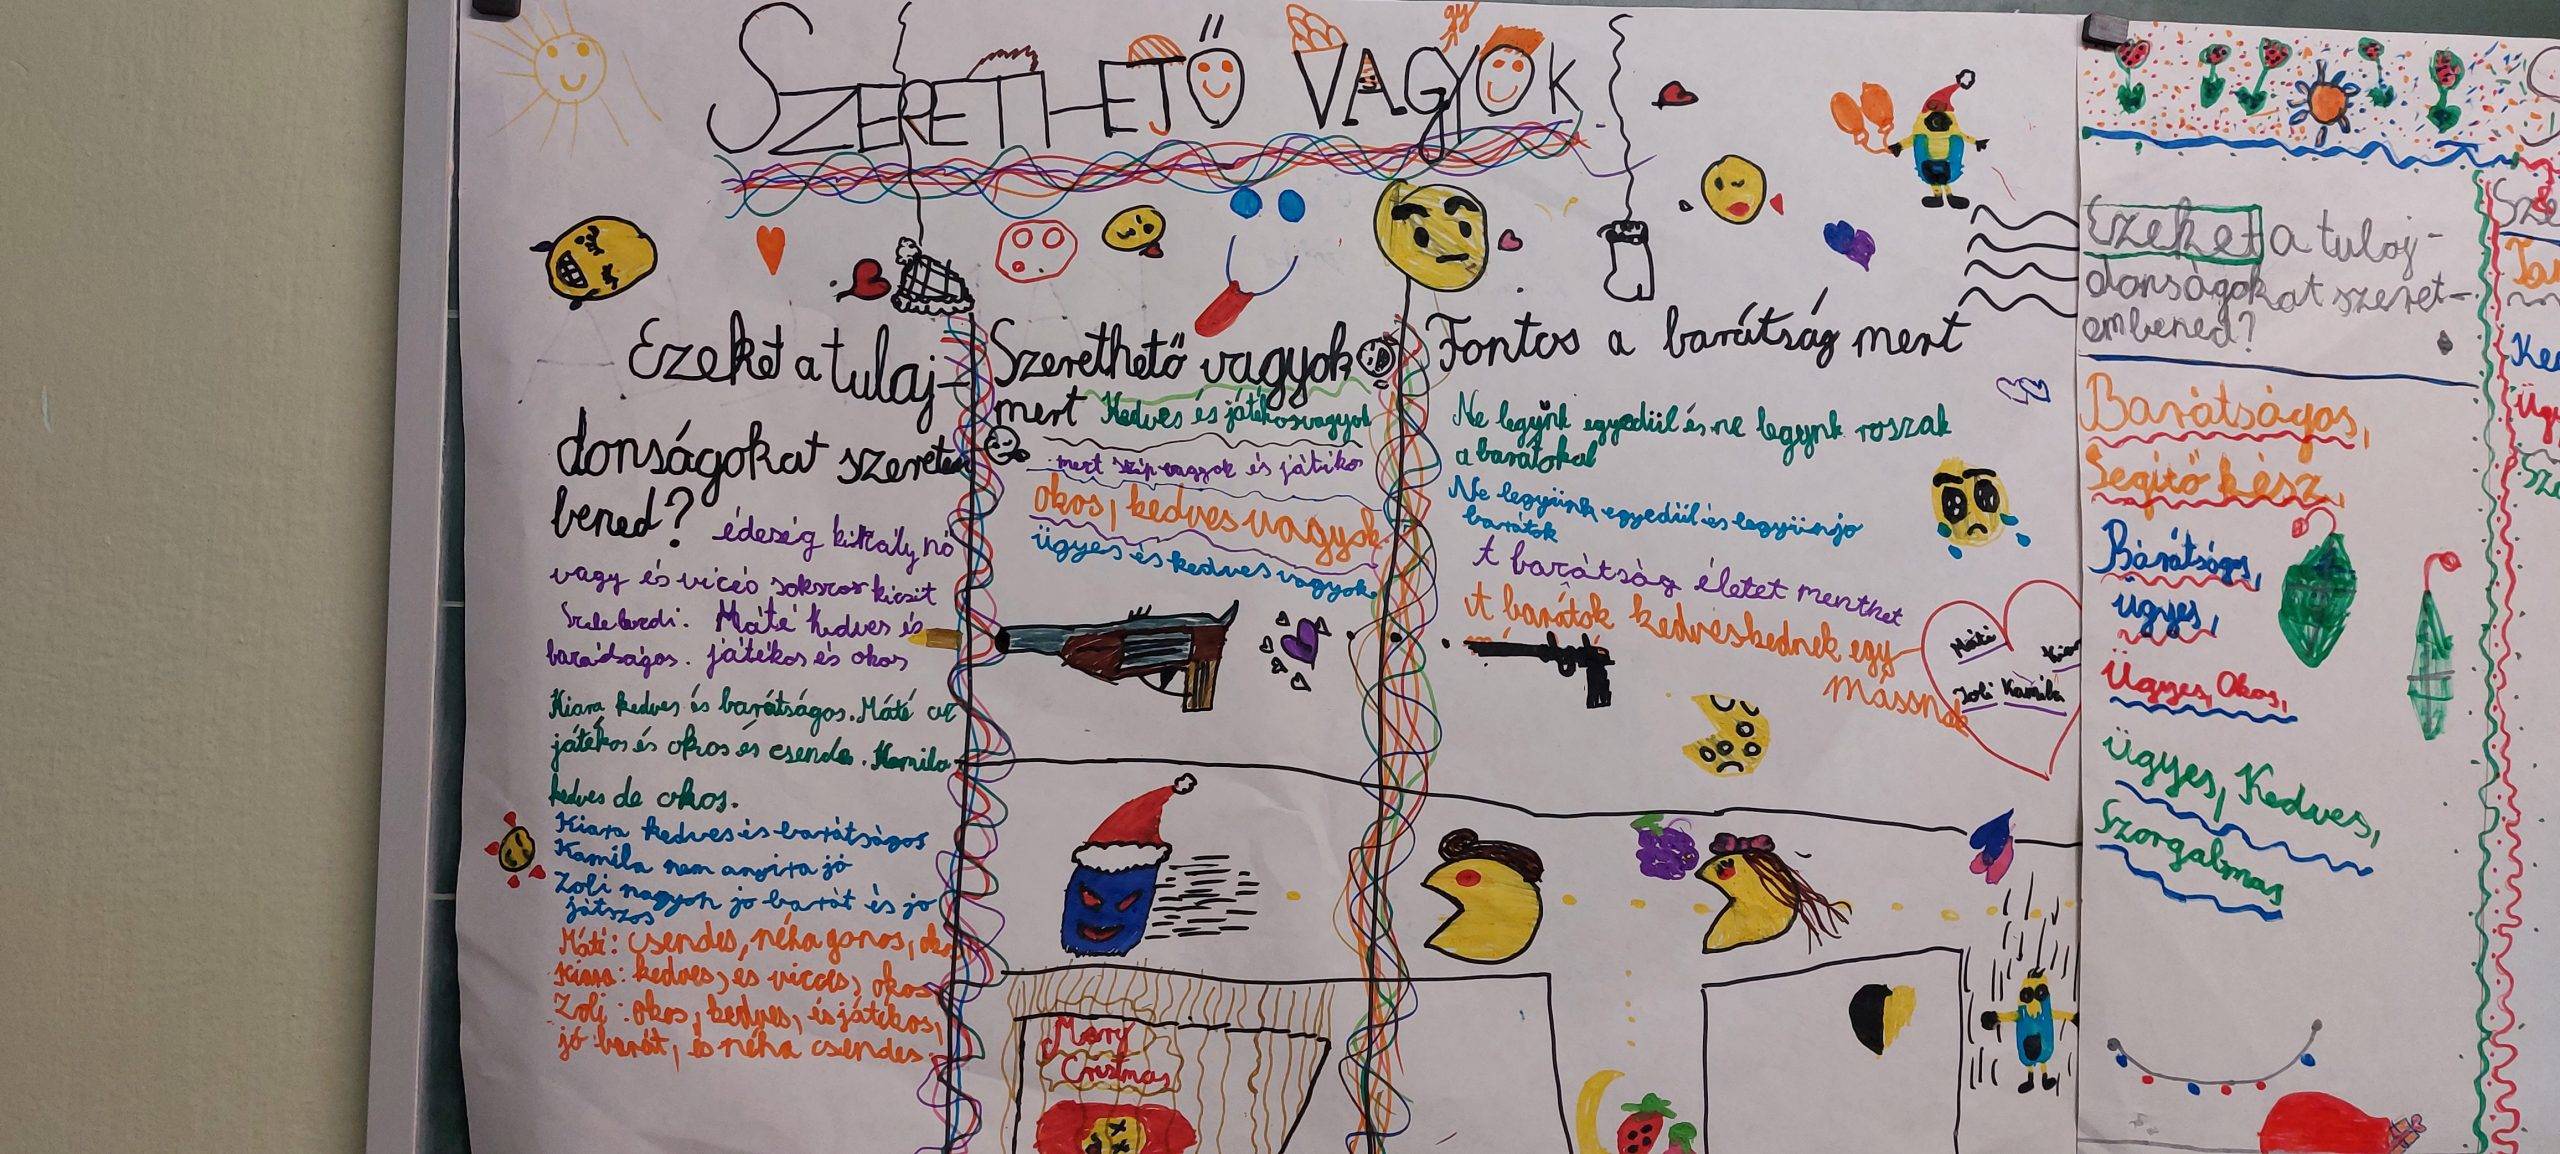 SZERETHETŐ VAGYOK
gy
Ezeket a tulaj-
donságokat szeretem
bened? édeség királynő
vagy és viceő sokszor kicsit
Máté kedves és
barádságos. játékos és okos
Kiara kedves és barátságos. Máté az
játékos és okos és csende. Kamila
kedves de okos.
Kiara kedves és barátságos
Kamila nem anyira jó
Zoli nagyon jo barát és jo
játszos
Máté: csendes, néha gonos, oko
Kiara: kedves, és vicces, okos
Zoli: okos, kedves, és játékos,
jó barát, és néha csendes
Szerethető vagyok
mert Kedves és játékos vagyok
mert szép vagyok és játékos
okos, kedves vagyok
ügyes és kedves vagyok
Fontos a barátság mert
Ne legyünk egyedül és ne legynk roszak
a barátokal
Ne legyünk egyedül és legyünjo
barátok
A barátság életet menthet
A barátok kedveskednek egy
mássnak
Máté
Zoli Kamila
Mary
Cristmas
Ezeket a tulaj-
donságokat szeret-
em bened?
Barátságos,
Segítő kész,
Barátságos,
ügyes,
Ügyes, Okos,
ügyes, Kedves,
Szorgalmas